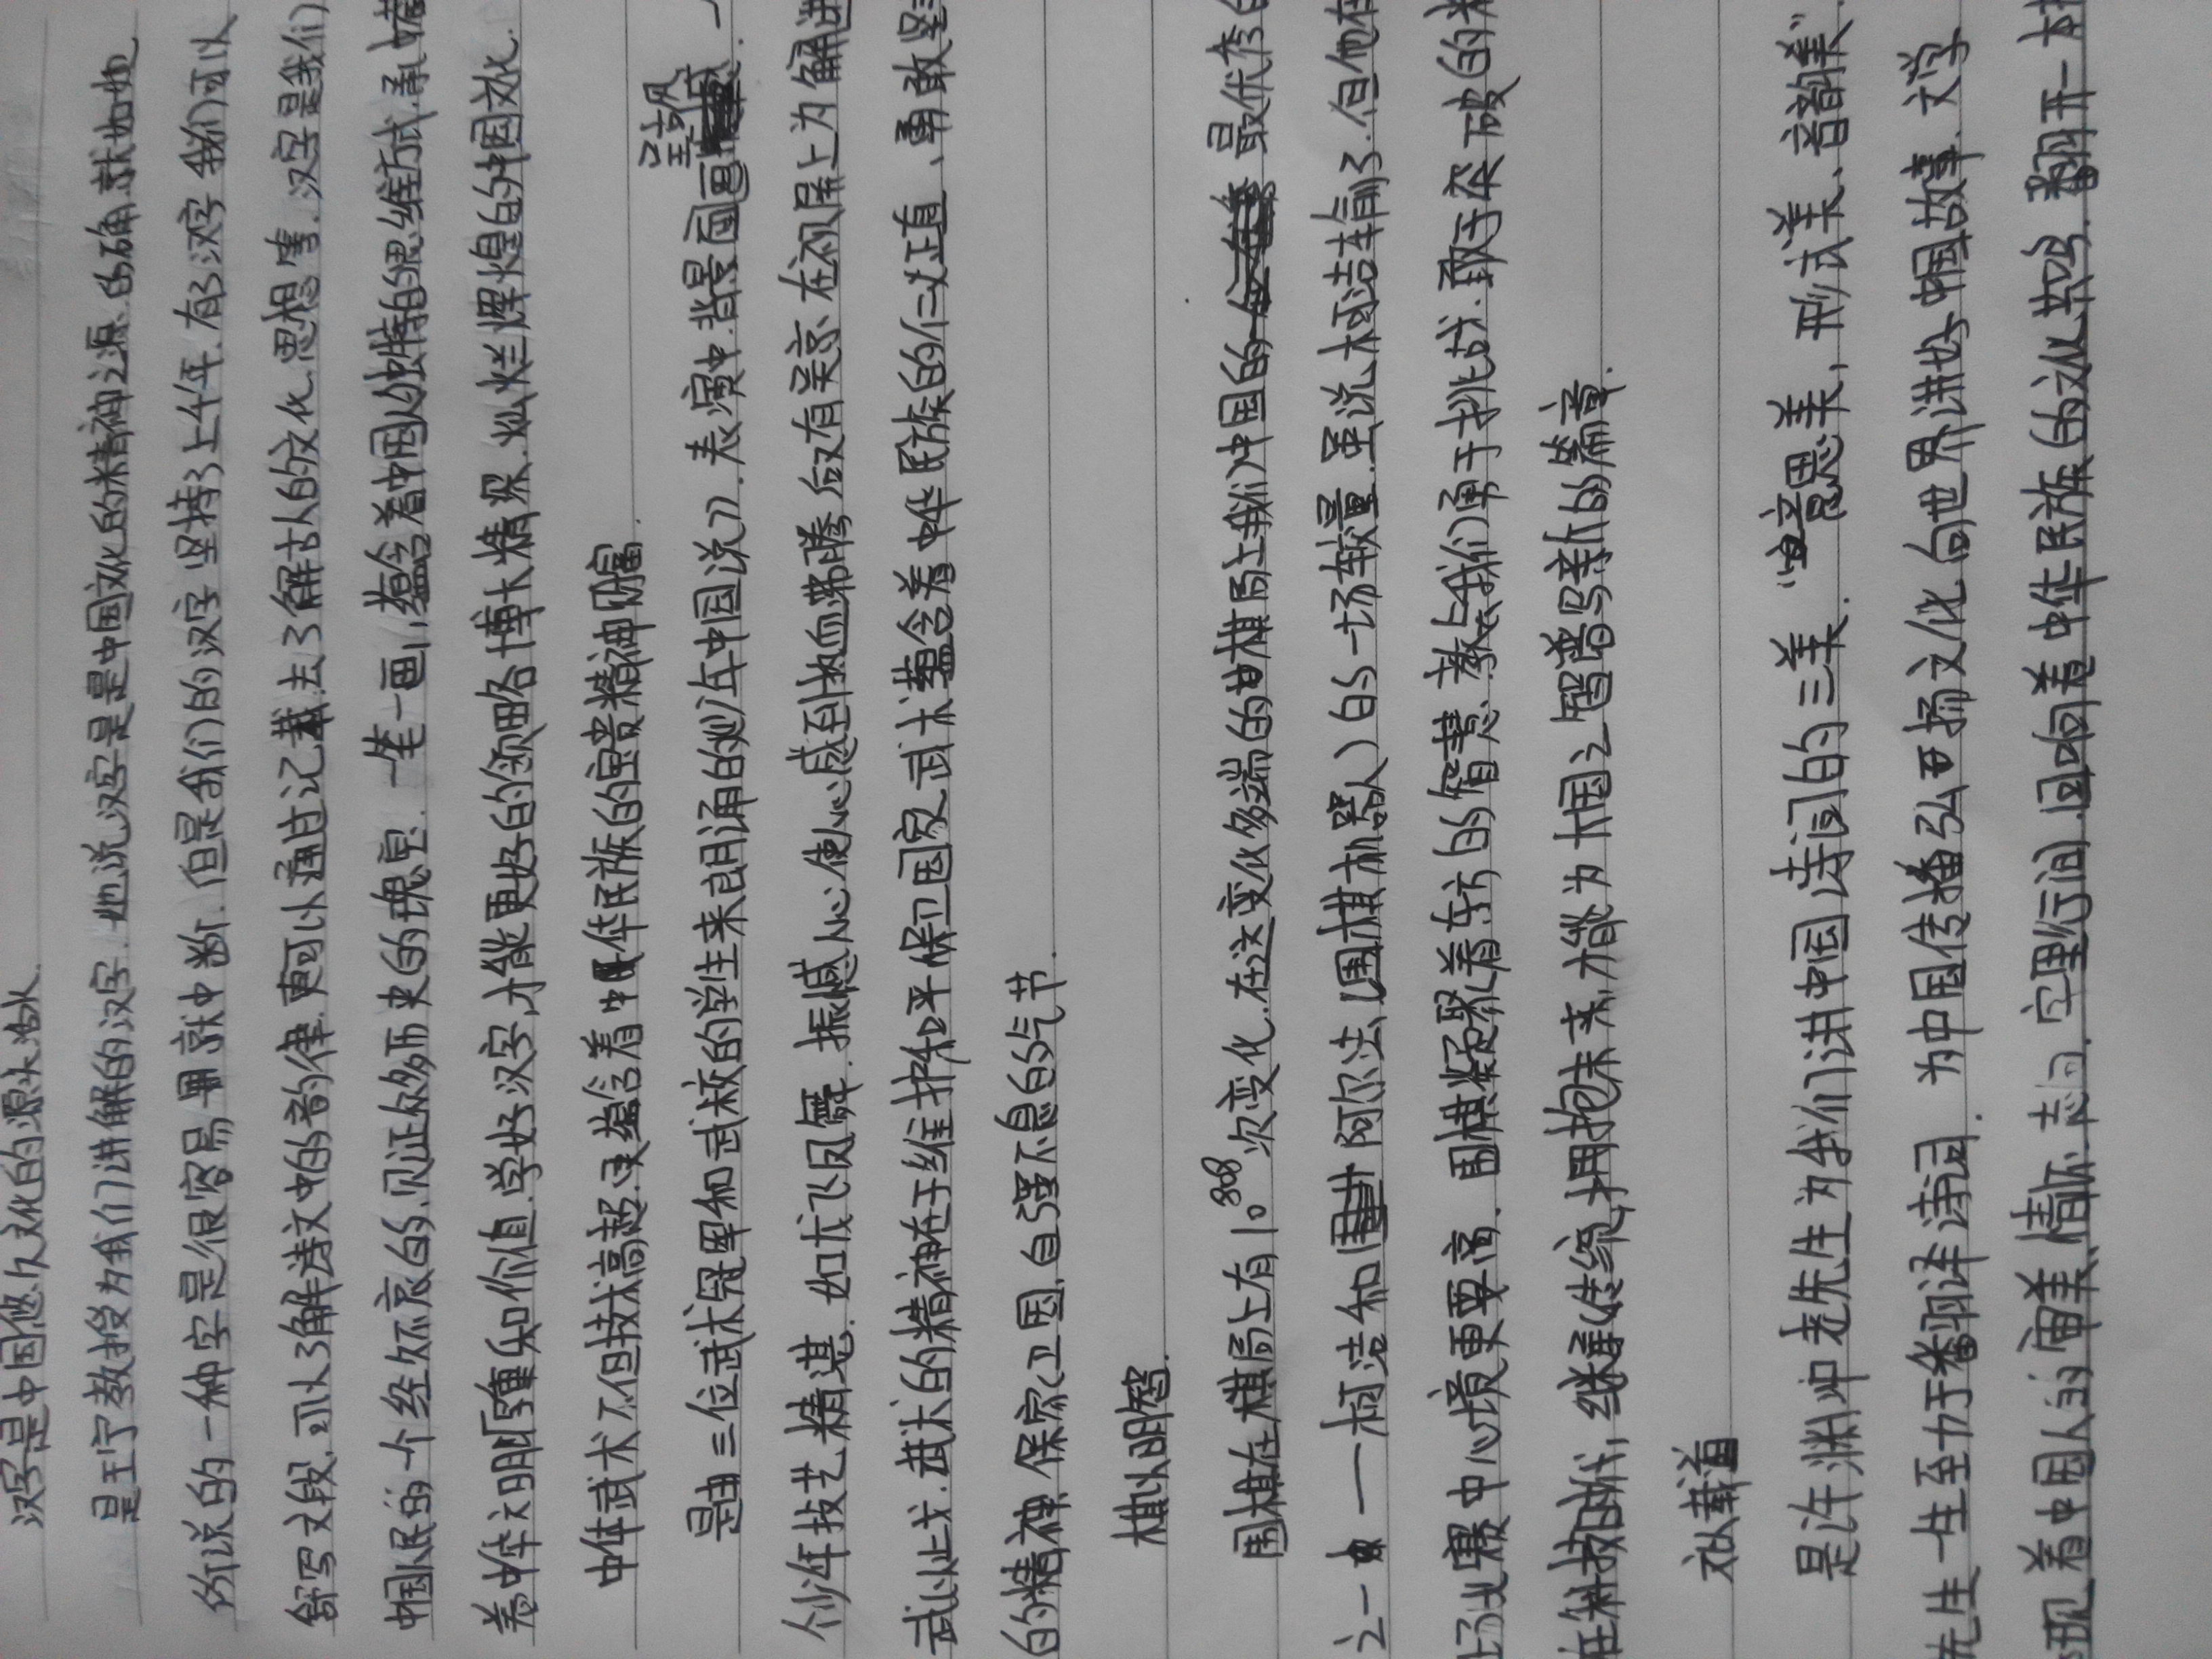 汉字是中国悠久文化的源头活水.
是王宁教授为我们讲解的汉字.她说汉字是中国文化的精神之源.的确.就如她
所说的一种字是很容易就中断.但是我们的汉字坚持了上千年.有了汉字我们可以
舒写文段.可以了解诗文中的韵律.更可以通过记载去了解古人的文化.思想等.汉字是我们
中国人民的一个经久不衰的.见证众多历史的瑰宝.一笔一画,蕴含着中国人独特的思维方式.承载
着中华文明和价值.学好汉字,才能更好的领略博大精深.灿烂辉煌的中国文化.
中体武术不但技术高超.更蕴含着中华民族的宝贵精神财富.
是由三位武术冠军和武校的学生来朗诵的《少年中国说》.表演中.背景画
呈现
个少年技艺精湛.如龙飞凤舞.振憾人心.使人心感到热血沸腾.后又有吴京、在视屏上为解
武以止戈.武术的精神在于维护和平保卫国家.武术蕴含着中华民族的仁义正直、勇敢坚
的精神.保家卫国.自强不息的气节.
棋以明智.
围棋在棋局上有10⁸⁰⁸次变化.在这变化多端的棋局让我们中国的最优秀
之一——柯洁和阿尔法(围棋机器人)的一场较量.虽说柯洁输了.但他在
比赛中心境更要高.围棋凝聚着东方的智慧.教会我们勇于挑战.敢于突破的
在科技时代,继承传统,拥抱未来,才能为大国之智谱写新的篇章.
文以载道
是许渊冲老先生为我们讲中国诗词的三美.“意思美,形试美、音韵美”.
先生一生至力于翻译诗词.为中国传播弘扬文化.向世界讲好中国故事.文学
现着中国人的审美.情怀.志向.字里行间.回响着中华民族的文化共鸣.翻开一本